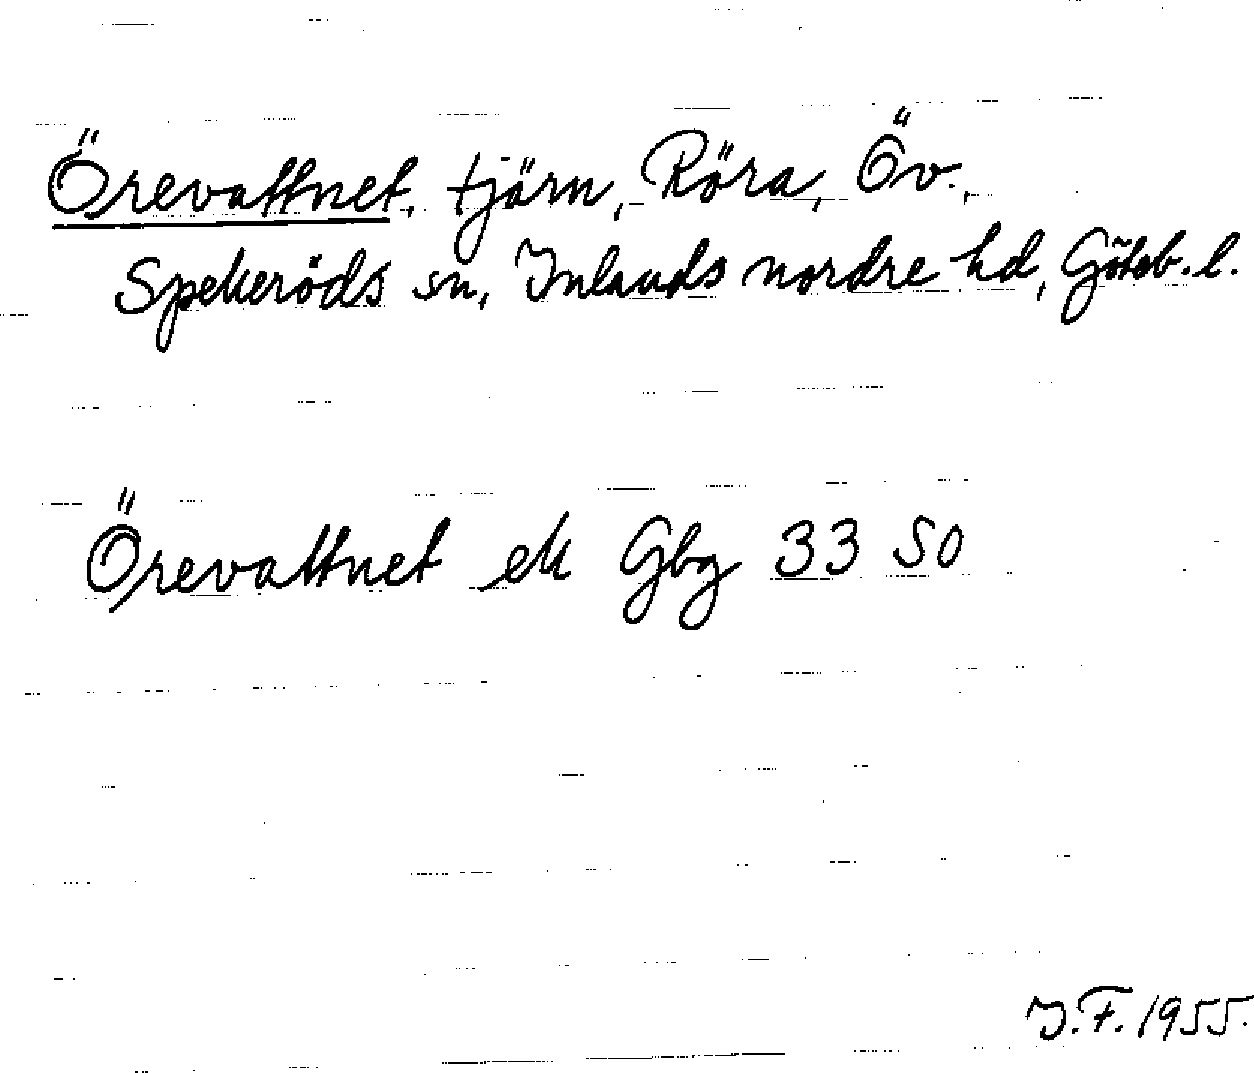 Örevattnet, tjärn, Röra, Öv.,
Spekeröds sn, Inlands nordre hd, Göteb. l.
Örevattnet ek Gbg 33 SO
I.F. 1955.